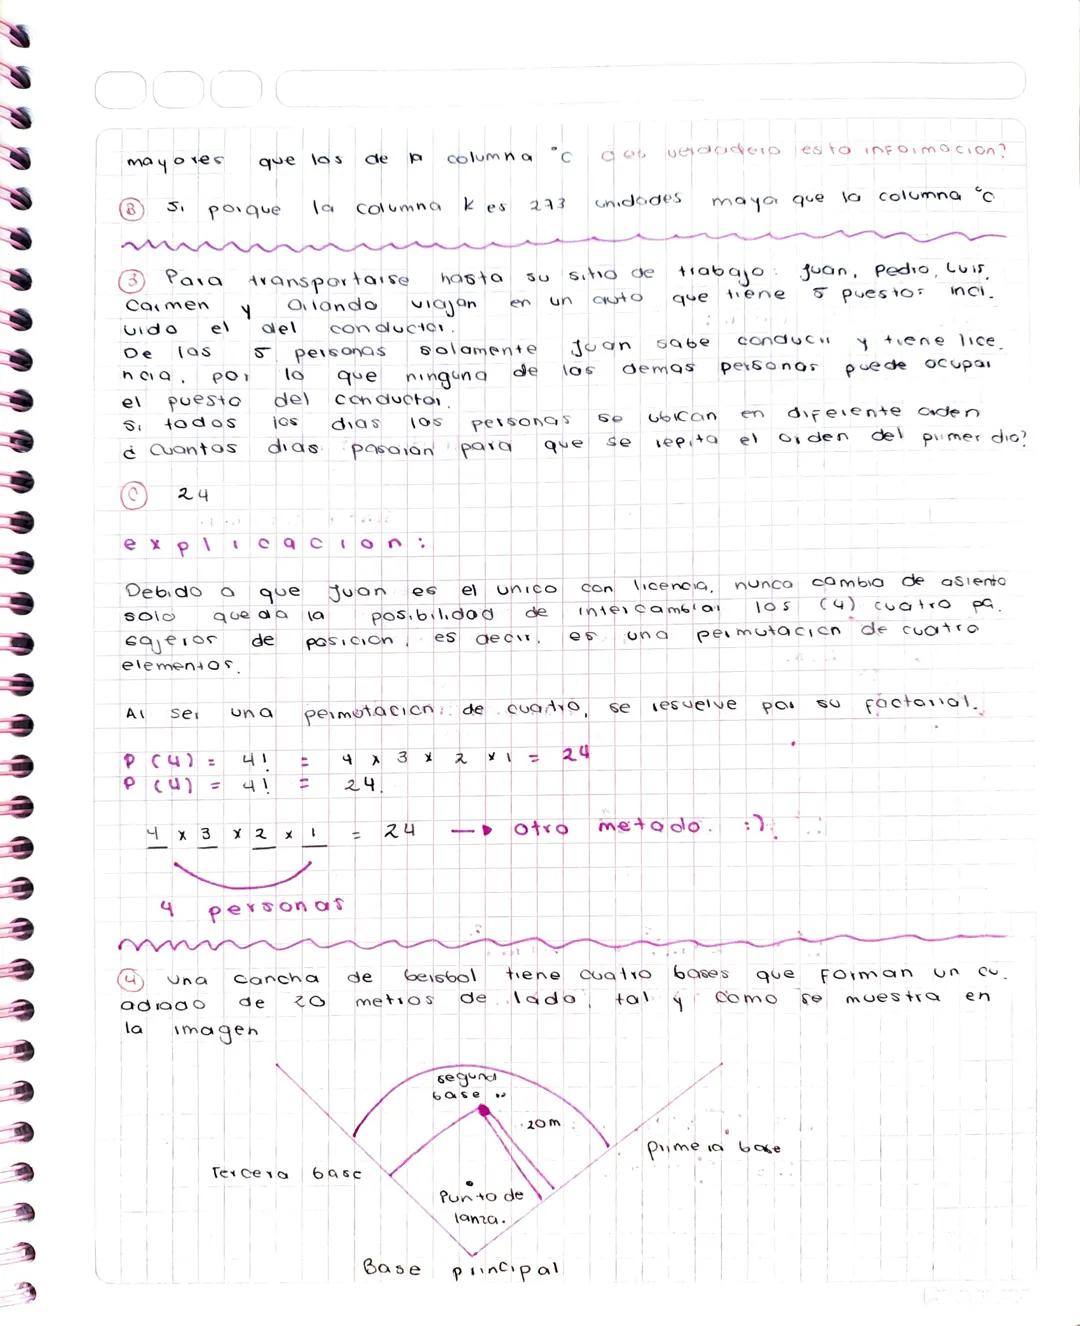 mayores que los de la columna °C ¿es verdadera esta informacion?
(B) Si porque la columna K es 273 unidades mayor que la columna °C
(3) Para transportarse hasta su sitio de trabajo: Juan, Pedro, Luis,
Carmen y Orlando viajan en un auto que tiene 5 puestos incl.
uido el del conductor.
De las 5 personas solamente Juan sabe conducir y tiene lice.
ncia, por lo que ninguna de las demas personas puede ocupar
el puesto del conductor.
Si todos los dias las personas se ubican en diferente orden
¿Cuantos dias pasaran para que se repita el orden del primer dia?
(C) 24
explicacion:
Debido a que Juan es el unico con licencia, nunca cambia de asiento
solo queda la posibilidad de intercambiar los (4) cuatro pa.
sajeros de posicion, es decir, es una permutacion de cuatro
elementos.
Al ser una permutacion de cuatro, se resuelve por su factorial.
P (4) = 4! = 4 x 3 x 2 x 1 = 24
P (4) = 4! = 24.
4 x 3 x 2 x 1 = 24 → otro metodo. :)
4 personas
(4) una cancha de beisbol tiene cuatro bases que forman un cu.
adrado de 20 metros de lado, tal y como se muestra en
la imagen
segund
base
20m
Primera base
Tercera base
Punto de
lanza.
Base principal